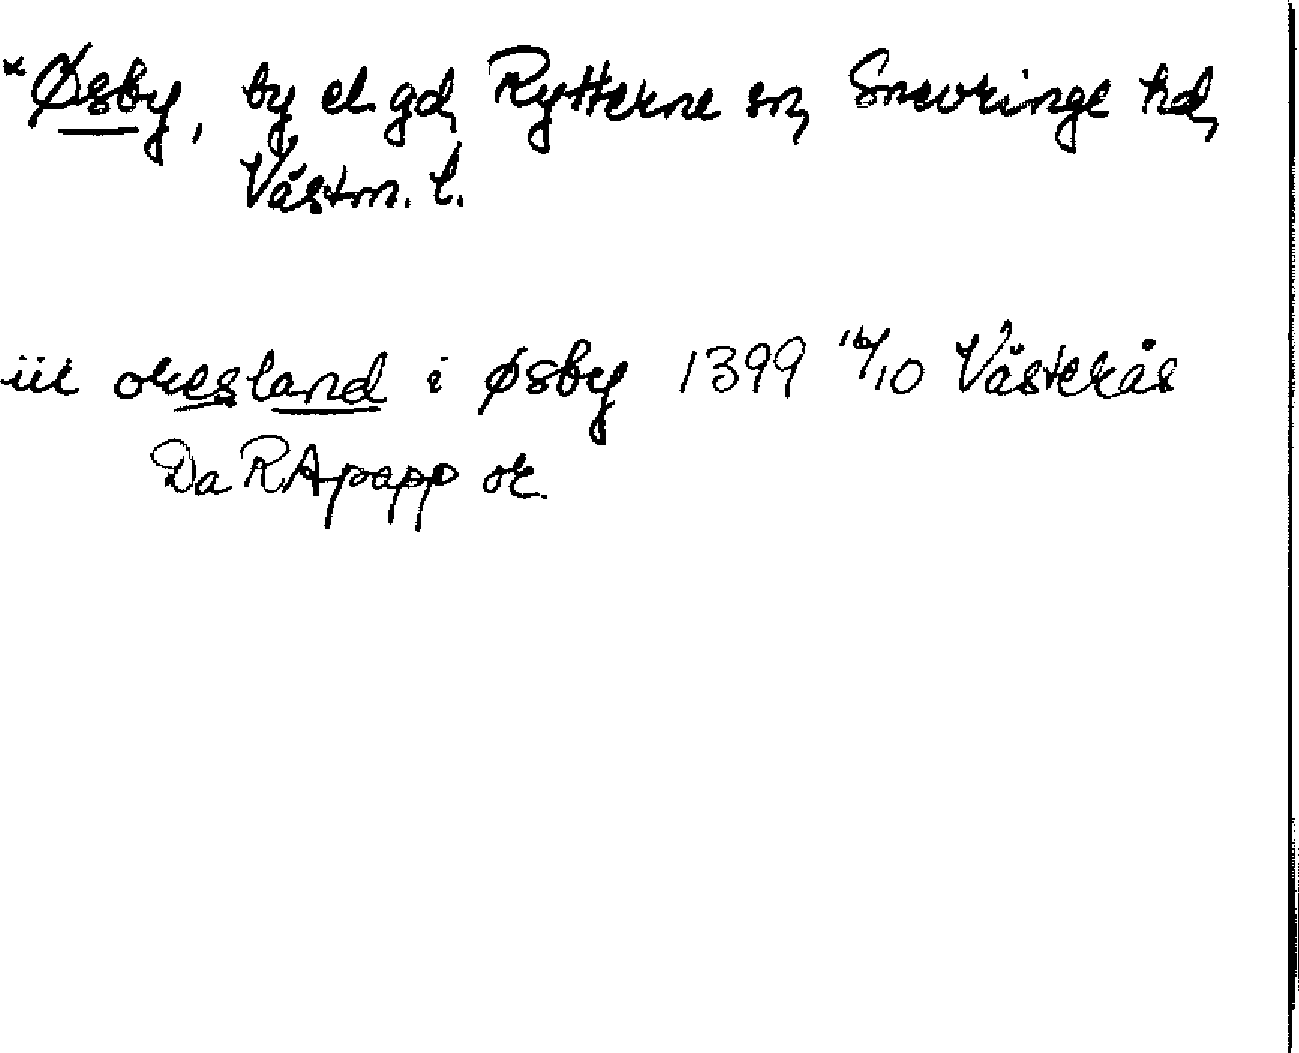 *Øsby, by el. gd, Rytterne sn, Snevringe hd,
Västm. l.
iii øresland i øsby 1399 16/10 Västerås
Da RApapp or.